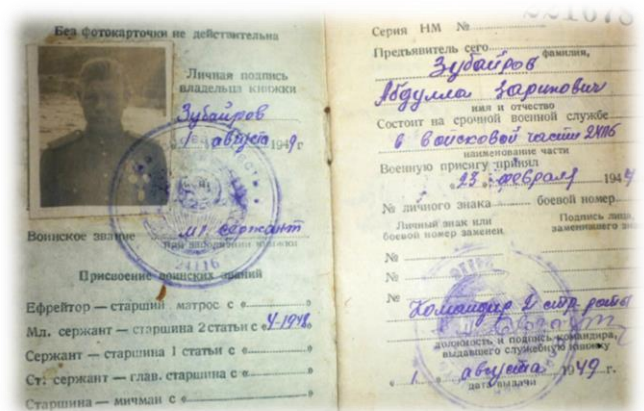 Без фотокарточки не действительна
Личная подпись
владельца книжки
Зубаиров
августа 1949 г
Воинское звание мл. сержант
при заполнении книжки
24116
Присвоение воинских званий
Ефрейтор — старший матрос с « »
Мл. сержант — старшина 2 статьи с « V-1948 »
Сержант — старшина 1 статьи с « »
Ст. сержант — глав. старшина с « »
Старшина — мичман с « »
Серия НМ №
Предъявитель сего
фамилия,
Зубаиров
Абдулла Зарипович
имя и отчество
Состоит на срочной военной службе
в войсковой части 24116
наименование части
Военную присягу принял
« 23 » февраля 194
№ личного знака боевой номер
Личный знак или Подпись лица,
боевой номер заменен заменившего
№
№
№
Командир 2 стр. роты
должность и подпись командира,
выдавшего служебную книжку
« 1 » августа 1949 г.
дата выдачи